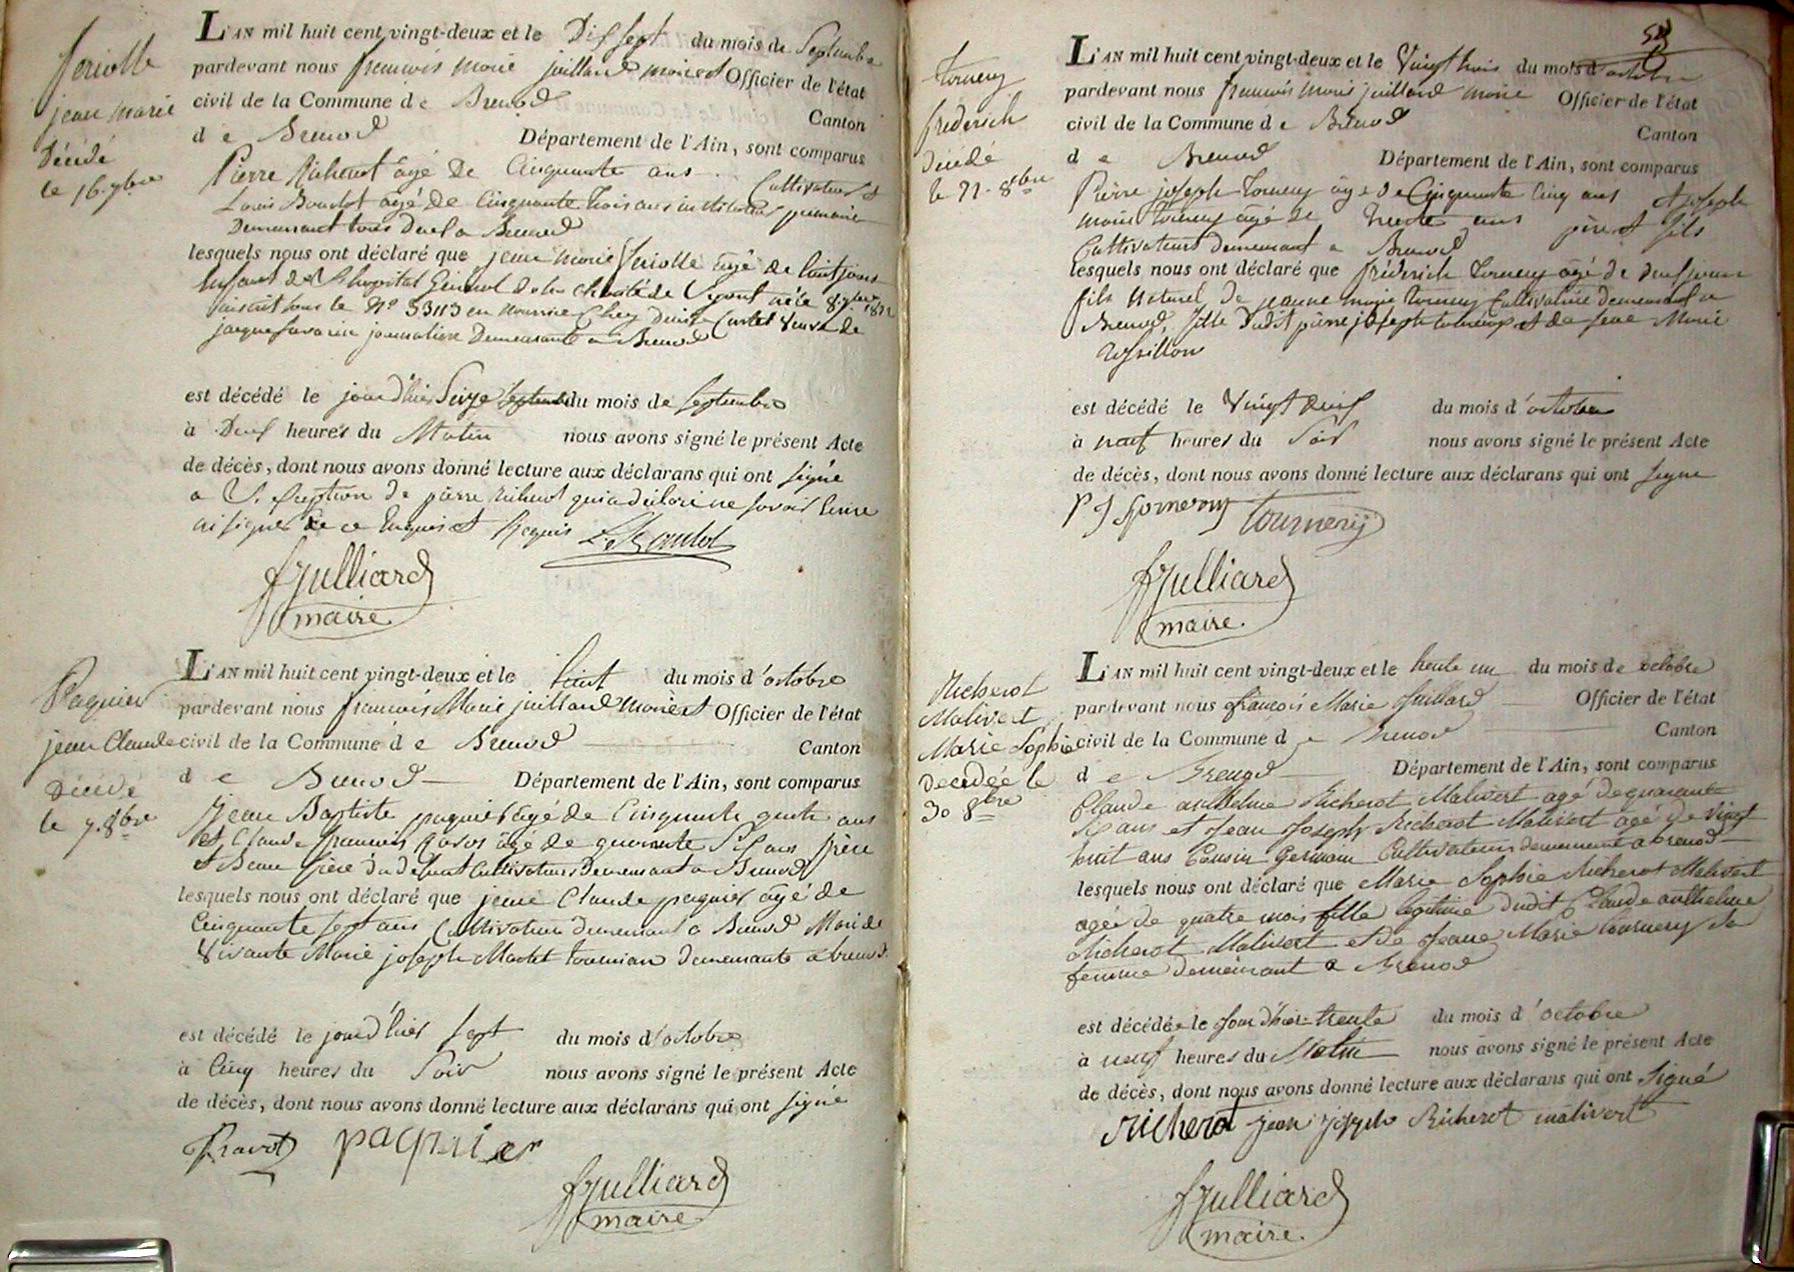 feriolle
jean marie
Décédé
le 16. 7bre
L'AN mil huit cent vingt-deux et le Dix sept du mois de Septembre
pardevant nous francois marie juillard maire et Officier de l'état
civil de la Commune d e Brenod
Canton
d e Brenod Département de l'Ain, sont comparus
Pierre Richerot âgé de Cinquante ans Cultivateur et
Louis Boudot âgé de Cinquante trois ans instituteur primaire
Demeurant tous Deux a Brenod
lesquels nous ont déclaré que jean marie feriolle âgé de huit jours
Enfant de l'hopital Général de la charité de né le 8. 7bre 1822
inscrit sous le N° en nourrice chez Denise veuve de
jacque journaliere Demeurante a Brenod
est décédé le jour d'hier Seize septembre du mois de septembre
à Deux heures du Matin nous avons signé le présent Acte
de décès, dont nous avons donné lecture aux déclarans qui ont signé
a l'Exception de pierre Richerot qui a déclaré ne savoir Ecrire
ni signer de ce Enquis et Requis L. Boudot
fJulliard
maire
Paquier
jean Claude
Décédé
le 7. 8bre
L'AN mil huit cent vingt-deux et le huit du mois d'octobre
pardevant nous francois Marie juillard maire et Officier de l'état
civil de la Commune d e Brenod
Canton
d e Brenod Département de l'Ain, sont comparus
jean Baptiste paquier âgé de Cinquante quatre ans
et Claude francois Ravot âgé de quarante six ans frère
et Beau frère du défunt Cultivateurs Demeurant a Brenod
lesquels nous ont déclaré que jean Claude paquier âgé de
Cinquante sept ans Cultivateur demeurant a Brenod Mari de
vivante Marie joseph Martel demeurante a brenod
est décédé le jour d'hier sept du mois d'octobre
à Cinq heures du Soir nous avons signé le présent Acte
de décès, dont nous avons donné lecture aux déclarans qui ont signé
Ravot paquier
fJulliard
maire
58
tournery
frederich
Décédé
le 8bre
L'AN mil huit cent vingt-deux et le Vingt trois du mois d'octobre
pardevant nous francois marie juillard maire Officier de l'état
civil de la Commune d e Brenod
Canton
d e Brenod Département de l'Ain, sont comparus
Pierre joseph tournery âgé de Cinquante cinq ans et joseph
marie tournery âgé de Trente ans père et fils
Cultivateurs demeurant a Brenod
lesquels nous ont déclaré que fréderich tournery âgé de deux jours
fils Naturel de jeanne marie tournery Cultivatrice demeurant a
Brenod, fille Dudit pierre joseph tournery et de feue Marie
est décédé le Vingt deux du mois d'octobre
à neuf heures du Soir nous avons signé le présent Acte
de décès, dont nous avons donné lecture aux déclarans qui ont signé
P J tornery tournerij
fJulliard
maire.
Richerot
Malivert
Marie Sophie
Decedée le
30 8bre
L'AN mil huit cent vingt-deux et le trente un du mois de octobre
pardevant nous françois Marie Juillard Officier de l'état
civil de la Commune d e Brenod
Canton
d e Brenod Département de l'Ain, sont comparus
Claude anthelme Richerot Malivert agé de quarante
six ans et Jean Joseph Richerot Malivert agé de vingt
huit ans Cousin Germain Cultivateurs demeurant a brenod
lesquels nous ont déclaré que Marie Sophie Richerot Malivert
agée de quatre mois fille légitime dudit Claude anthelme
Richerot Malivert et de Jeane Marie tournery sa
femme demeurant a Brenod
est décédée le Jour d'hier trente du mois d'octobre
à neuf heures du Matin nous avons signé le présent Acte
de décès, dont nous avons donné lecture aux déclarans qui ont signé
Richerot jean joseph Richerot malivert
fJulliard
maire.